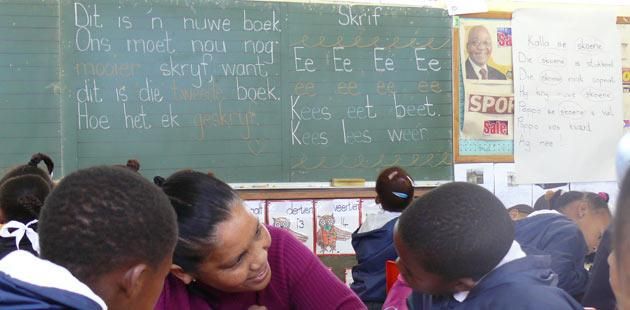 Dit is 'n nuwe boek.
Ons moet nou nog
mooier skryf, want
dit is die tweede boek.
Hoe het ek geskryf
Skrif
Ee Ee Ee Ee
ee ee ee ee
Kees eet beet.
Kees lees weer.
safe
SPOR
safe
Kalla se skoene
Die skoene is
Die skoene
skoene
Pappa se skoene is
Pappa
Ag nee!
dertien
13
veertien
14